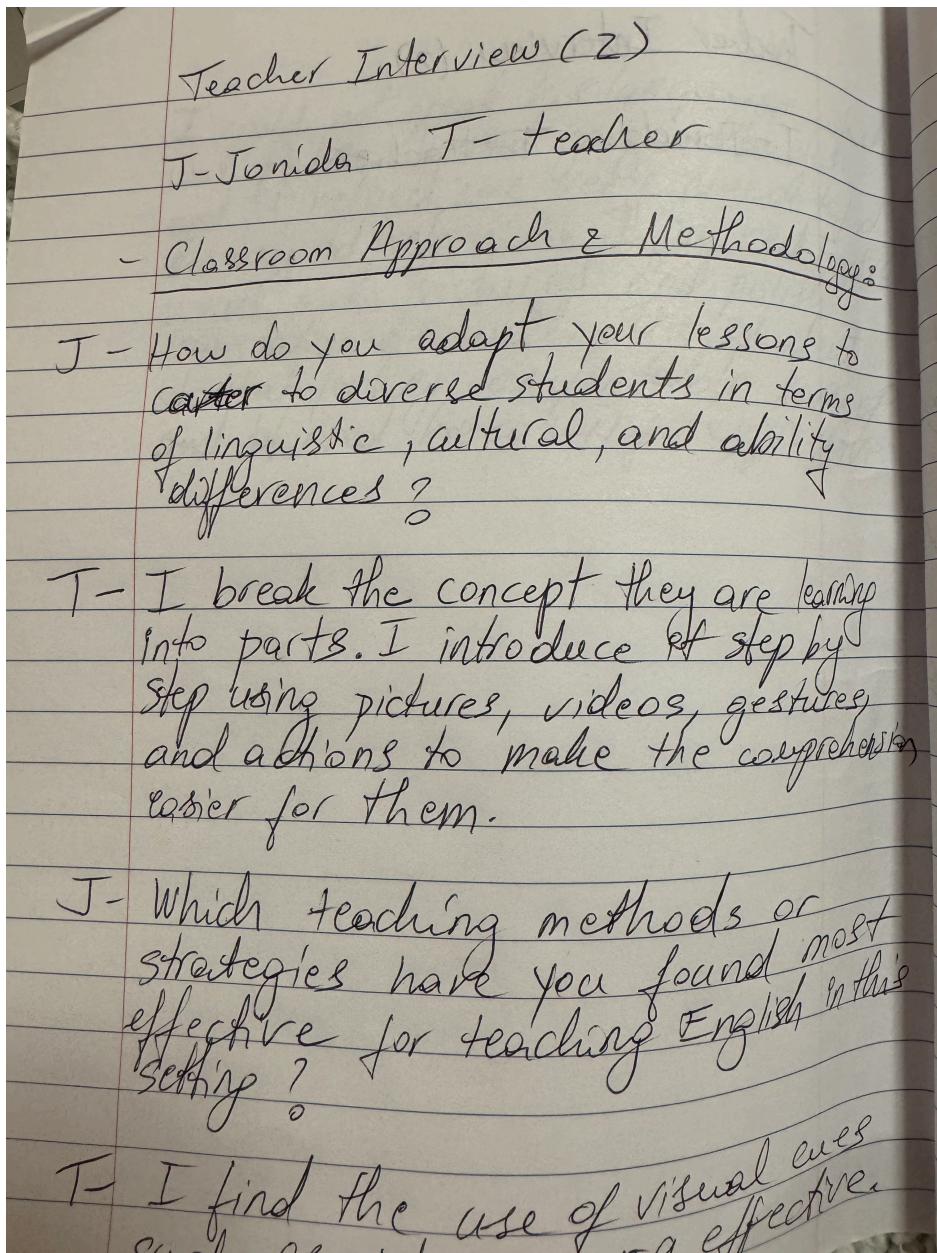 Teacher Interview (2)
J-Jonida T- teacher
- Classroom Approach & Methodology:
J - How do you adapt your lessons to
carter to diverse students in terms
of linguistic, cultural, and ability
differences?
T- I break the concept they are learning
into parts. I introduce it step by
step using pictures, videos, gestures,
and actions to make the comprehension
easier for them.
J- Which teaching methods or
strategies have you found most
effective for teaching English in this
setting?
T- I find the use of visual cues
effective.